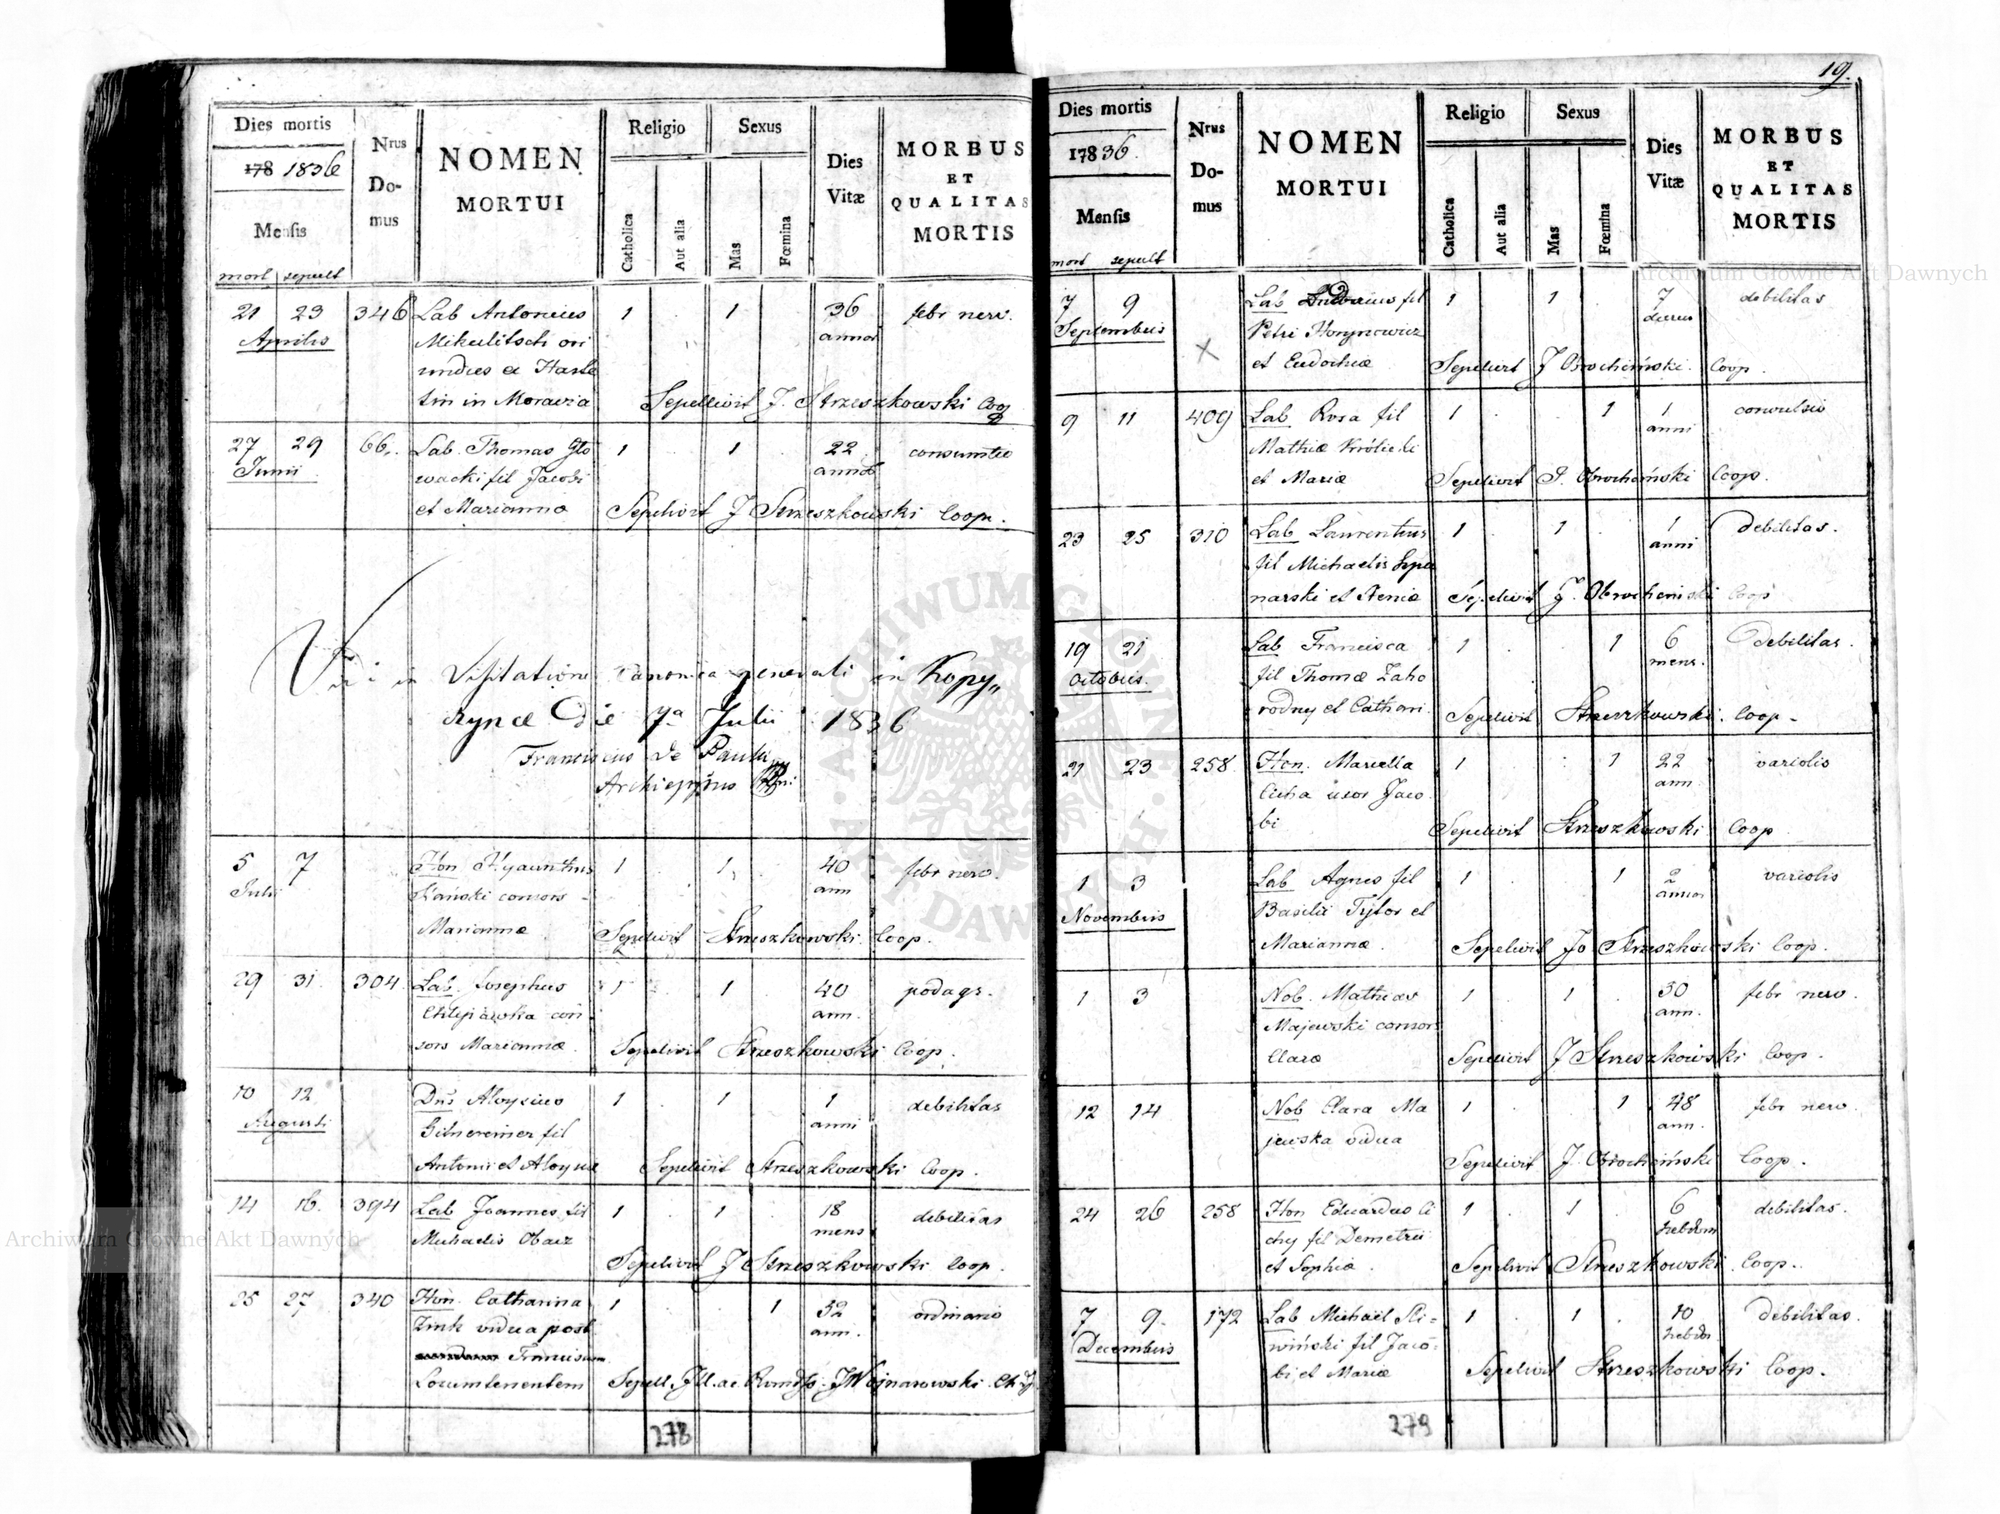 Dies mortis
178 1836
Mensis
mort sepult
Nrus
Do-
mus
NOMEN
MORTUI
Religio
Catholica
Aut alia
Sexus
Mas
Fœmina
Dies
Vitæ
MORBUS
ET
QUALITAS
MORTIS
21 23 346 Lab Antonius 1 . 1 . 36 febr nerv.
Aprilis Mikulitsch ori annor
undus ex
tin in Moravia Sepelivit J. Strzeszkowski Coop
27 29 66. Lab. Thomas Gło 1 . 1 . 22 consumtio
Junii wacki fil Jacobi annor
et Marianna Sepelivit J Strzeszkowski Coop.
Vidi in Visitatione canonica generali in Kopy„
czyncæ Die 7a Julii 1836
Franciscus de Paula
Archieppus
5 7 Hon. Hyacinthus 1 . 1 . 40 febr nerv.
Julii consors ann
Mariannæ Sepelivit Strzeszkowski Coop.
29 31. 304. Lab. Josephus 1 1 . 40 podagr.
con ann.
sors Mariannæ. Sepelivit Strzeszkowski Coop.
10 12 Dns Aloysius 1 . 1 1 debilitas
Augusti fil anni
Antonii et Aloysiæ Sepelivit Strzeszkowski Coop.
14 16. 394 Lab Joannes fil 1 . 1 . 18 debilitas
Michaelis mens
Sepelivit J Strzeszkowski Coop.
25 27 340 Hon. Catharina 1 . . 1 52 ordinario
Zink vidua post ann.
Franciscum
Locumtenentem Sepell. Jll. ac Rvmds. J Wojnarowski
278
19.
Dies mortis
178 36.
Mensis
mort sepult
Nrus
Do-
mus
NOMEN
MORTUI
Religio
Catholica
Aut alia
Sexus
Mas
Fœmina
Dies
Vitæ
MORBUS
ET
QUALITAS
MORTIS
7 9 Lab fil 1 1 . 7 debilitas
Septembris Petri Horynowicz dierum
X et Eudochiæ Sepelivit J Obrocheński. Coop.
9 11 409 Lab Rosa fil 1 . . 1 1 convulsio
Mathiæ Królicki anni
et Mariæ Sepelivit J. Obrocheński Coop.
23 25 310 Lab Laurentius 1 . 1 . 1 debilitas.
fil Michaelis anni
narski et Sepelivit J. Obrocheński Coop
19 21 Lab Francisca 1 . 1 6 debilitas.
Octobris. fil Thomæ Zaho mens.
rodny et Cathari. Sepelivit Strzeszkowski. Coop.
21 23 258. Hon. Marcella 1 . 1 22 variolis
Cicha uxor Jaco ann.
bi Sepelivit Strzeszkowski Coop
1 3 Lab Agnes fil 1 . . 1 2 variolis
Novembris Basilii Tylor et annor
Mariannæ. Sepelivit Jo Strzeszkowski Coop.
1 3 Nob. Mathias 1 . 1 . 50 febr nerv.
Majewski consors ann.
Claræ Sepelivit J Strzeszkowski Coop.
12 14 Nob Clara Ma 1 . . 1 48 febr nerv.
jewska vidua ann.
Sepelivit J. Obrocheński Coop.
24 26 258 Hon Eduardus Ci 1 . 1 . 6 debilitas.
chy fil Demetrii hebdom
et Sophiæ. Sepelivit Strzeszkowski Coop.
7 9. 172 Lab Michaël Sli= 1 . 1 . 10 debilitas.
Decembris wiński fil Jaco= hebdo
bi et Mariæ Sepelivit Strzeszkowski Coop.
279
Archiwum Główne Akt Dawnych
Archiwum Główne Akt Dawnych
ARCHIWUM GŁÓWNE · AKT DAWNYCH ·